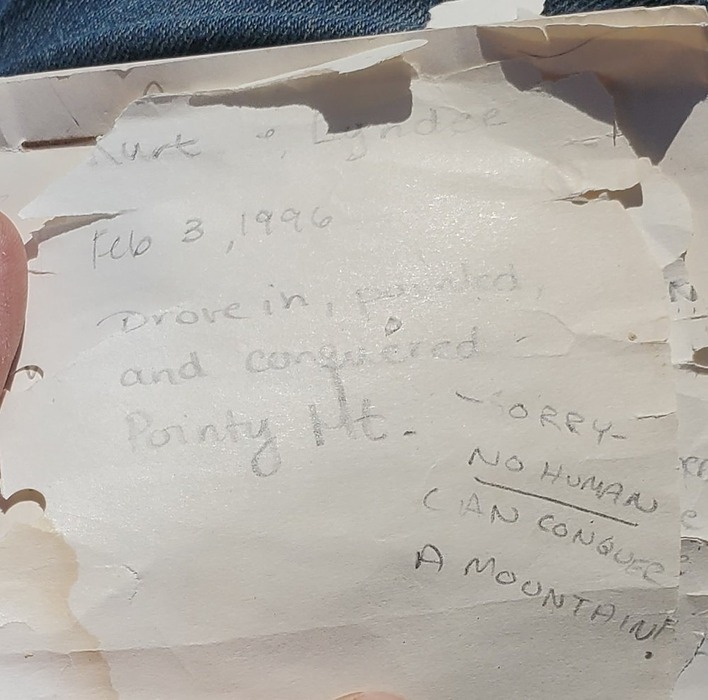 Kurt & Lyndee
Feb 3, 1996
Drove in,
and conquered
Pointy Mt.
-SORRY-
NO HUMAN
CAN CONQUER
A MOUNTAIN!